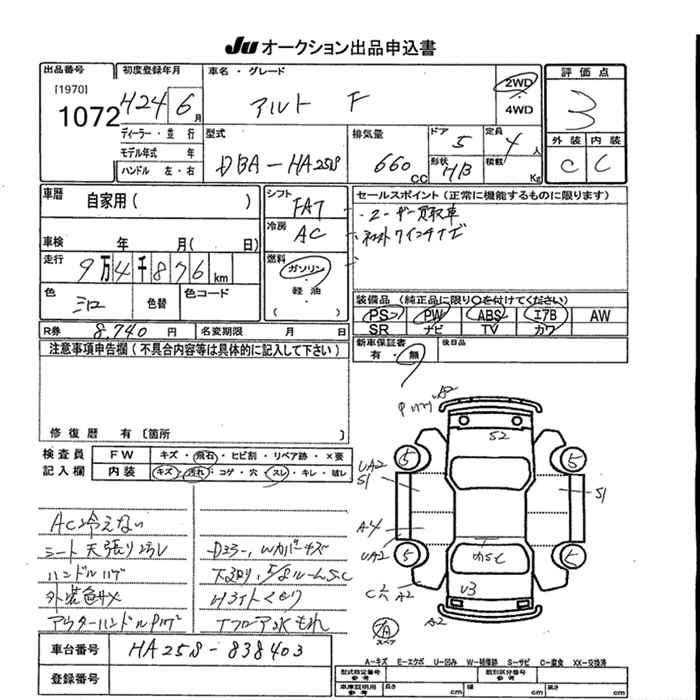 Ju オークション出品申込書
出品番号
[1970]
1072
初度登録年月
H24 6月
ディーラー・並行
モデル年式 年
ハンドル 左・右
車名・グレード
アルト F
2WD
4WD
型式
DBA-HA25S
排気量
660cc
ドア 5
形状 HB
定員 4人
積載 Kg
評価点
3
外装 内装
C C
車歴 自家用( )
車検 年 月( 日)
走行 9万4千876km
色 シロ
色替
色コード
R券 8,740円
名変期限 月 日
シフト FAT
冷房 AC
燃料 ガソリン
軽油
( )
セールスポイント(正常に機能するものに限ります)
・ユーザー買取車
装備品(純正品に限り○を付けてください)
PS PW ABS エアB AW
SR ナビ TV カワ
新車保証書
有・無
後日品
注意事項申告欄(不具合内容等は具体的に記入して下さい)
修復歴 有〔箇所 〕
検査員記入欄
FW キズ・飛石・ヒビ割・リペア跡・×要
内装 キズ・汚れ・コゲ・穴・スレ・キレ・破レ
AC冷えない
シート天張り汚レ
ハンドルハゲ
外装色サメ
アウターハンドルPハゲ
Dミラー、Wカバーキズ
下廻り、F/Sルームサ、C
Hライトくもり
Tフロア水もれ
A2
S2
5 5
UA2
S1
S1
A4
UA2
5 5
C穴 A2
U3
A2
有
スペア
車台番号 HA25S-838403
登録番号
A-キズ E-エクボ U-凹み W-補修跡 S-サビ C-腐食 XX-交換済
型式指定番号 参考
類別区分番号 参考
車庫証明用 参考
長さ cm 幅 cm 高さ cm